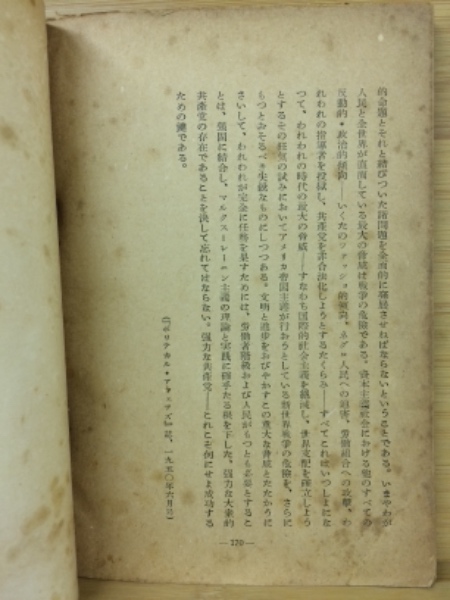 的命題とそれと結びついた諸問題を全面的に発展させねばならないということである。いまやわが
人民と全世界が直面している最大の脅威は戦争の危険である。資本主義社会における他のすべての
反動的・政治的傾向——いくたのファッショ的傾向、ネグロ人民への迫害、労働組合への攻撃、わ
れわれの指導者を投獄し、共産党を非合法化しようとするたくらみ——すべてこれはいつしまにな
つて、われわれの時代の最大の脅威——すなわち国際的社会主義を絶滅し、世界支配を確立しよう
とするその狂気の試みにおいてアメリカ帝国主義が行おうとしている新世界戦争の危険を、さらに
もつとおそるべき尖鋭なものにしつつある。文明と進歩をおびやかすこの重大な脅威とたたかうに
さいして、われわれが完全に任務を果すためには、労働者階級および人民がもつとも必要とするこ
とは、強固に結合し、マルクス＝レーニン主義の理論と実践に確乎たる根を下した、強力な大衆的
共産党の存在であることを決して忘れてはならない。強力な共産党——これこそ何にせよ成功する
ための鍵である。
（『ポリチカル・アフェアズ』誌、一九五〇年六月号）
—170—